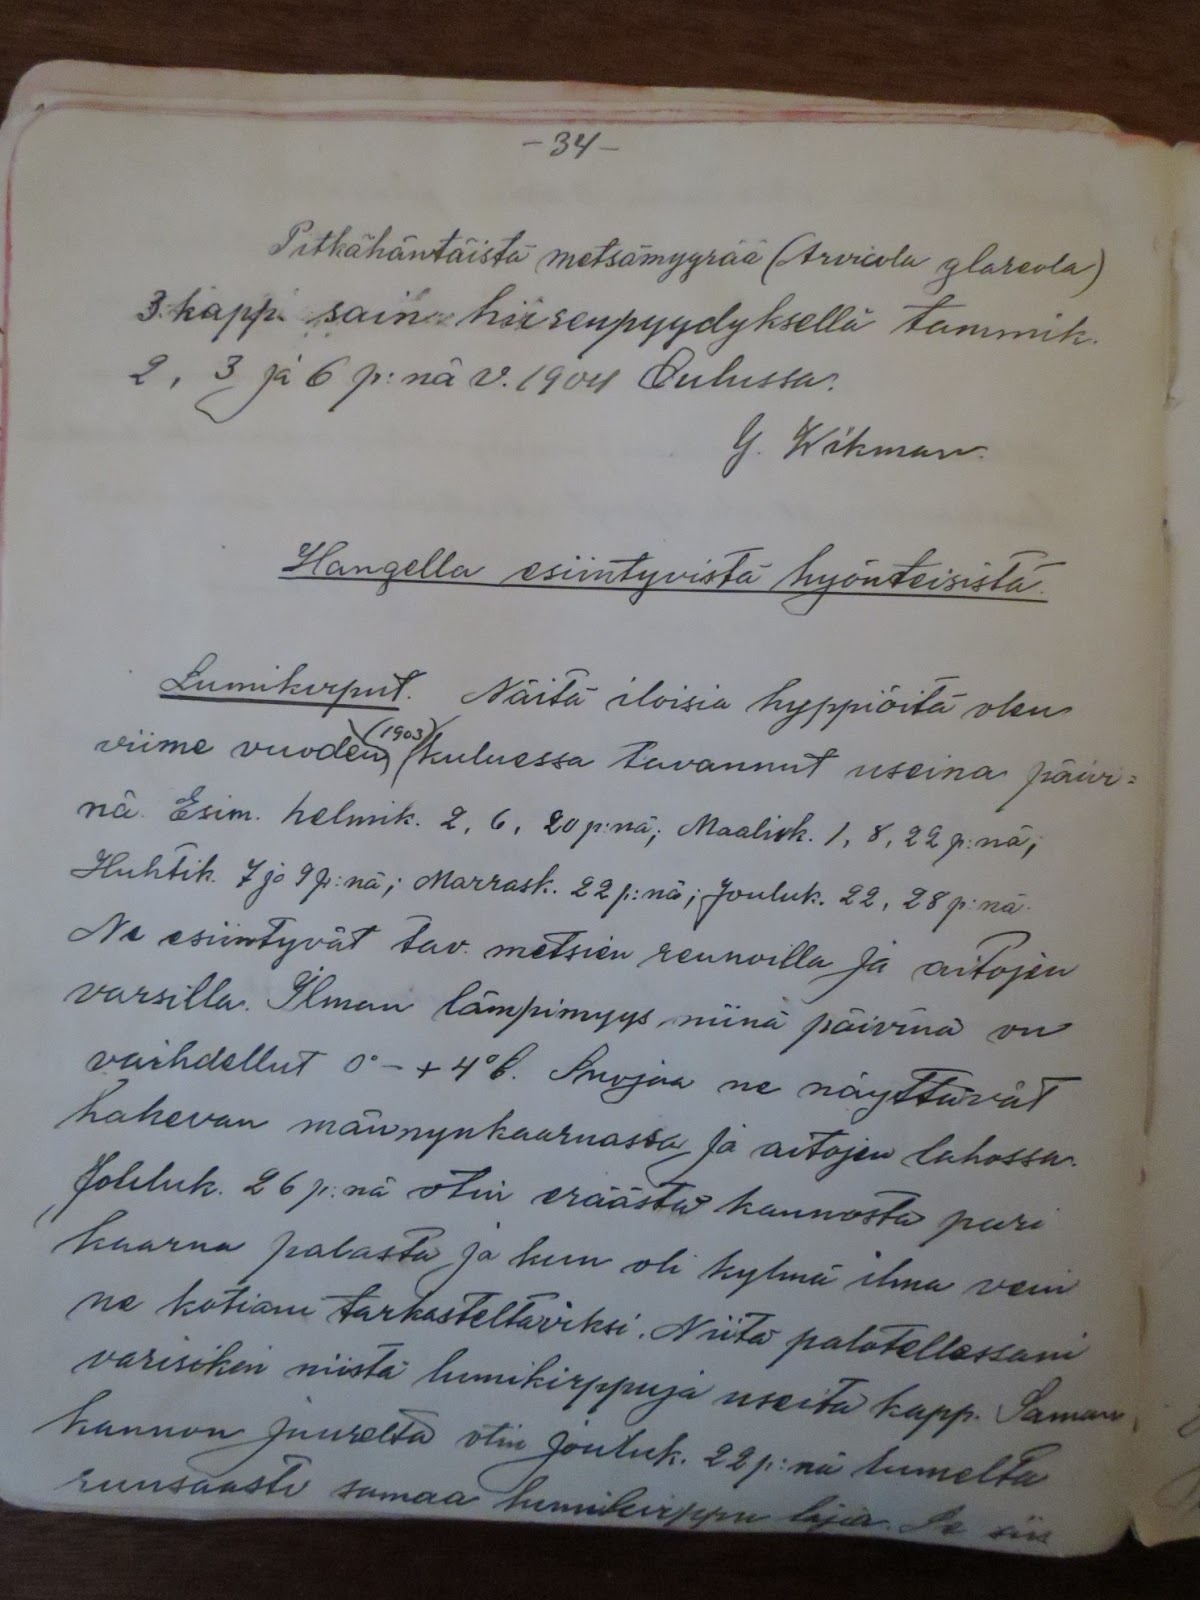 - 34 -
Pitkähäntäistä metsämyyrää (Arvicola glareola)
3 kapp. sain hiirenpyydyksellä tammik.
2, 3 ja 6 p:nä v. 1904 Oulussa.
G. Wikman.
Hangella esiintyvistä hyönteisistä.
Lumikirput. Näitä iloisia hyppiöitä olen
viime vuoden (1903) kuluessa tavannut useina päivi=
nä. Esim. helmik. 2, 6, 20 p:nä; Maalisk. 1, 8, 22 p:nä;
Huhtik. 7 ja 9 p:nä; Marrask. 22 p:nä; Jouluk. 22, 28 p:nä.
Ne esiintyvät tav. metsien reunoilla ja aitojen
varsilla. Ilman lämpimyys niinä päivinä on
vaihdellut 0° - + 4°C. Suojaa ne näyttävät
hakevan männynkaarnassa ja aitojen lahossa.
Jouluk. 26 p:nä otin eräästä kannosta pari
kaarna palasta ja kun oli kylmä ilma vein
ne kotiani tarkasteltaviksi. Niitä palotellessani
varisikin niistä lumikirppuja useita kapp. Saman
kannon juurelta otin jouluk. 22 p:nä lumelta
runsaasti samaa lumikirppu lajia. Se siis